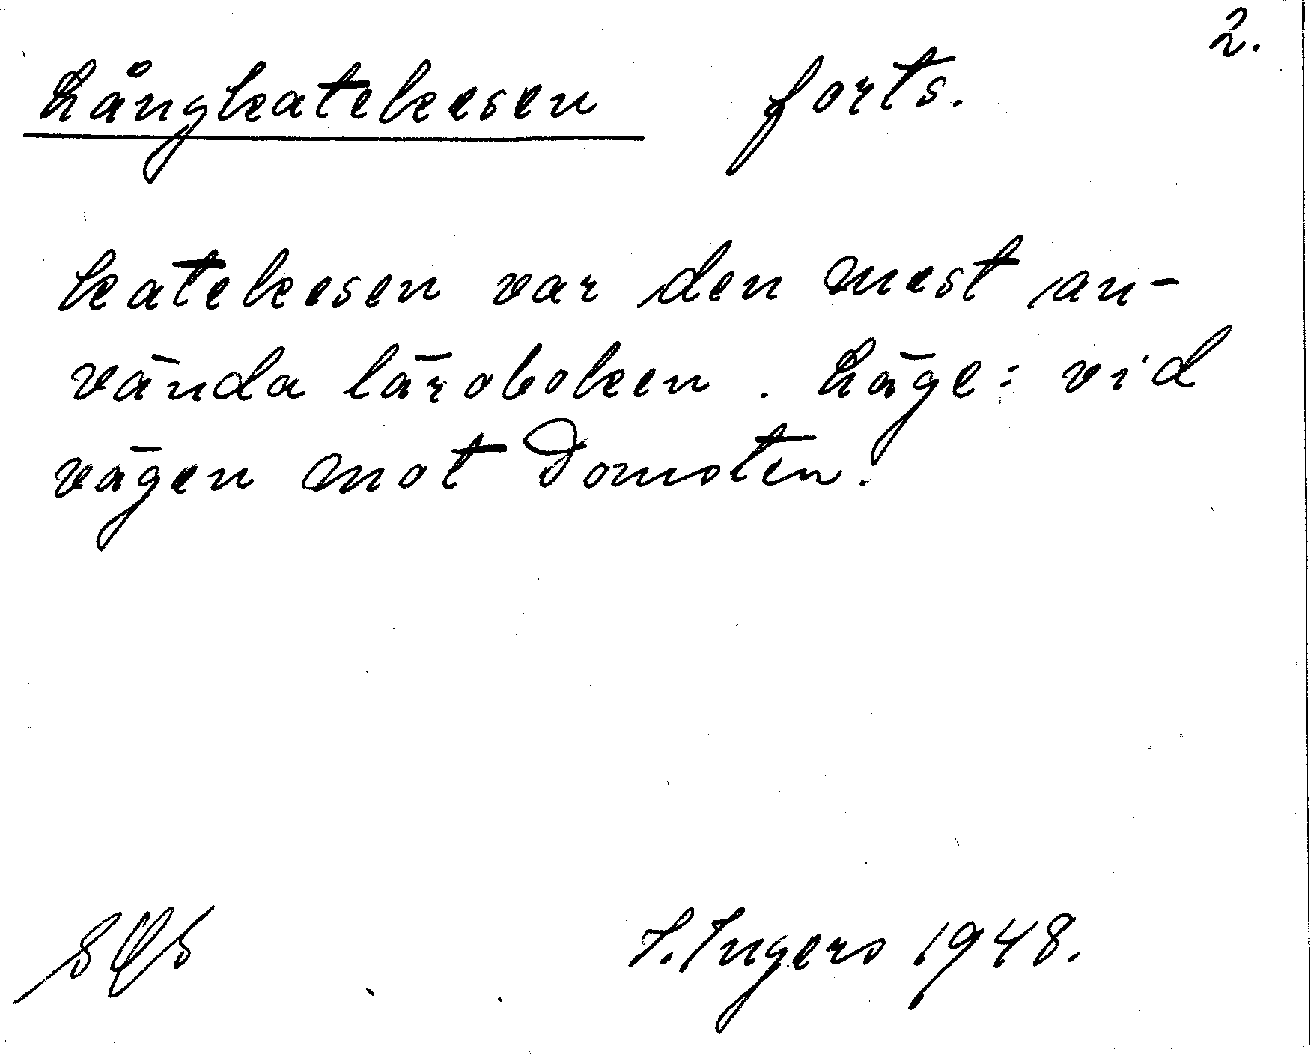 2.
Långkatekesen forts.
katekesen var den mest an-
vända läroboken. Läge: vid
vägen mot Domsten.
I. Ingers 1948.